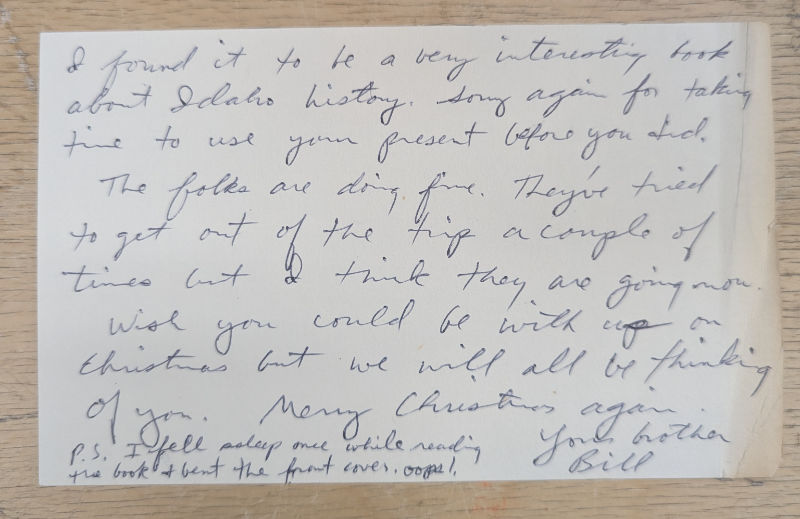 I found it to be a very interesting book
about Idaho history. Sorry again for taking
time to use your present before you did.
The folks are doing fine. They've tried
to get out of the trip a couple of
times but I think they are going now.
Wish you could be with us on
Christmas but we will all be thinking
of you. Merry Christmas again.
Your brother
Bill
P.S. I fell asleep once while reading
the book & bent the front cover. oops!